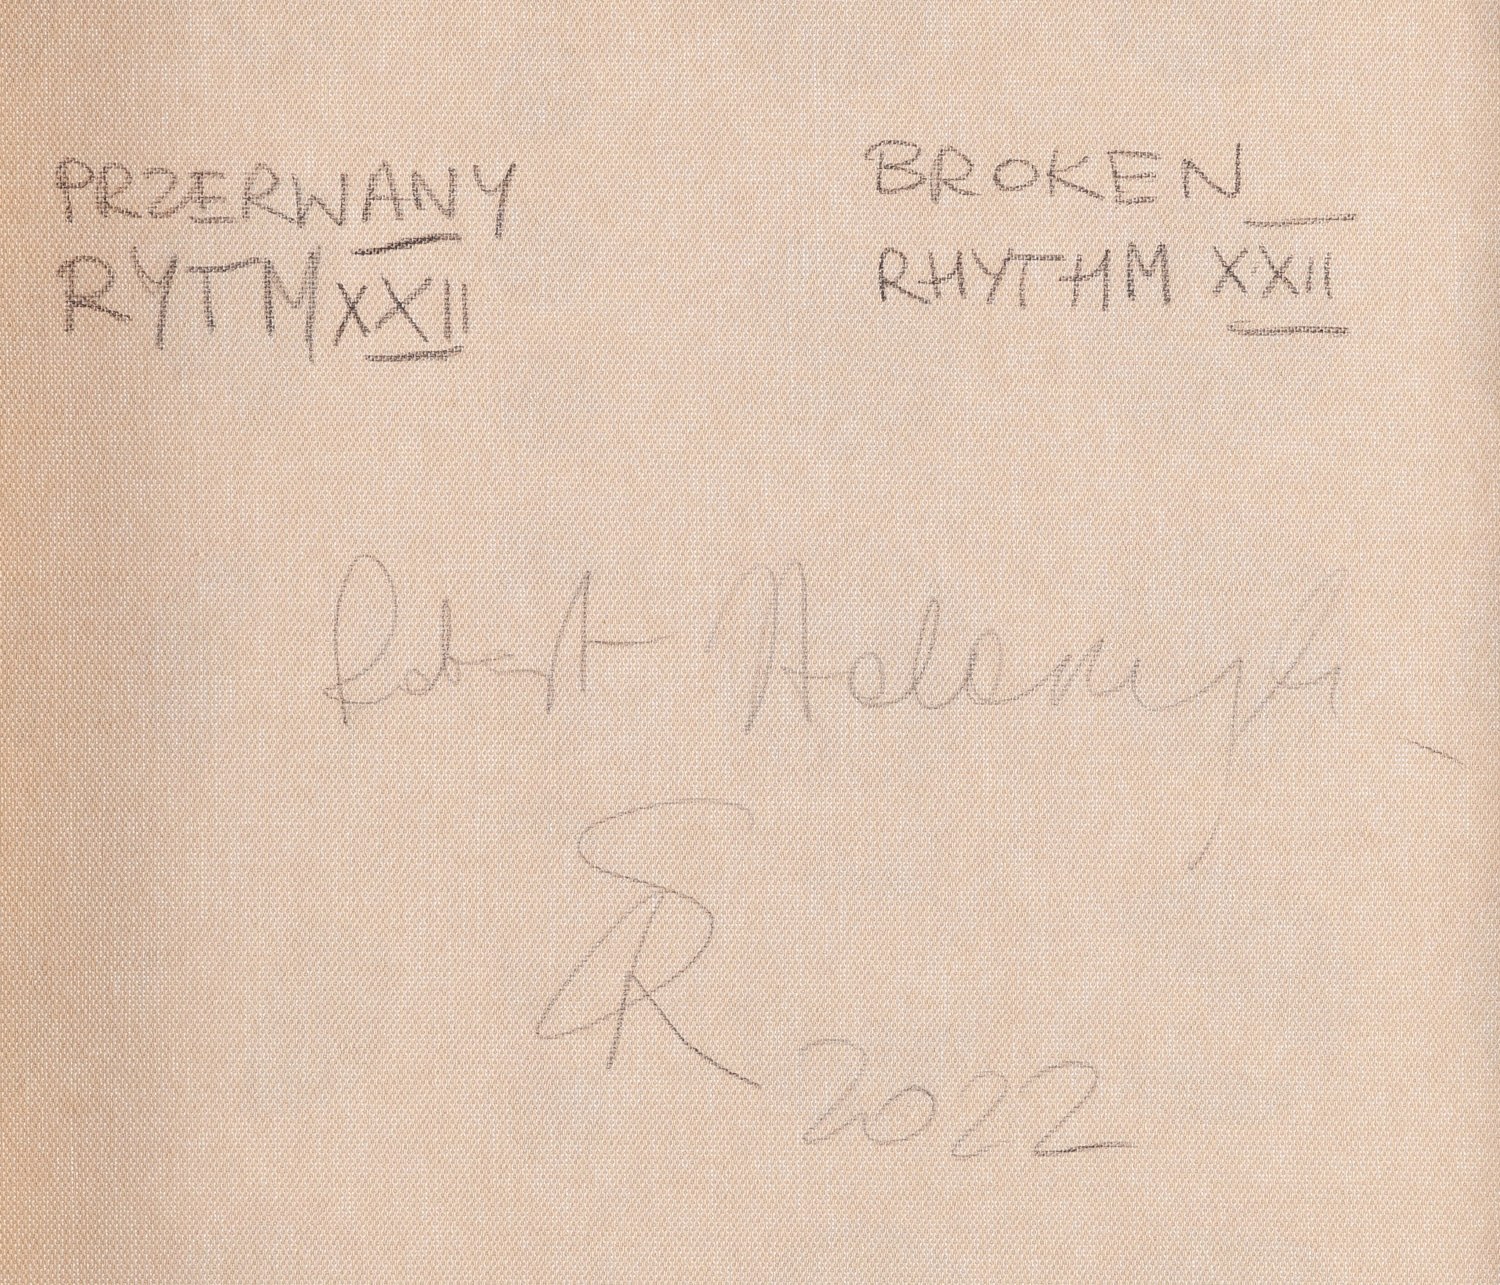 PRZERWANY
RYTM XXII
BROKEN
RHYTHM XXII
Robert
R 2022